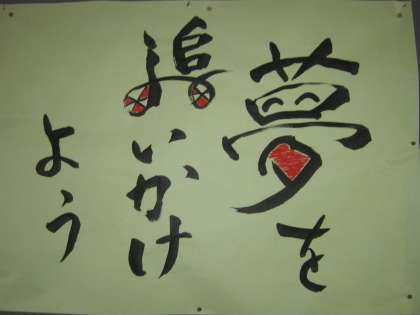 夢を
追いかけ
よう